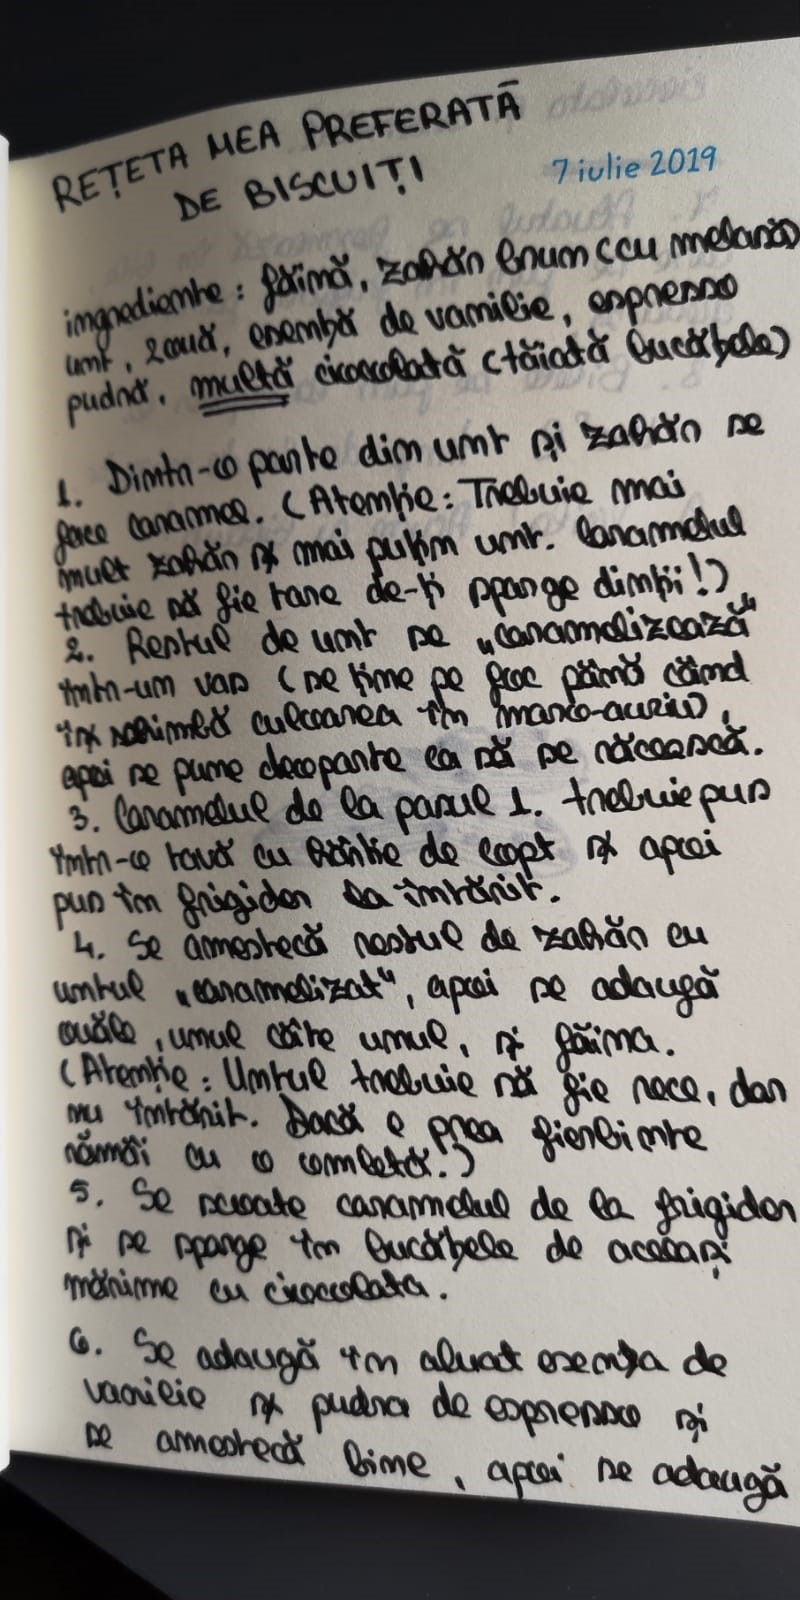 REȚETA MEA PREFERATĂ
DE BISCUIȚI
7 iulie 2019
ingrediente: făină, zahăr brun (cu melasă)
unt, 2 ouă, esență de vanilie, espresso
pudră, multă ciocolată (tăiată bucățele)
1. Dintr-o parte din unt și zahăr se
face caramel. (Atenție: Trebuie mai
mult zahăr și mai puțin unt. Caramelul
trebuie să fie tare de-ți sparge dinții!)
2. Restul de unt se „caramelizează"
într-un vas (se ține pe foc până când
își schimbă culoarea în maro-auriu),
apoi se pune deoparte ca să se răcească.
3. Caramelul de la pasul 1. trebuie pus
într-o tavă cu hârtie de copt și apoi
pus în frigider la întărit.
4. Se amestecă restul de zahăr cu
untul „caramelizat", apoi se adaugă
ouăle, unul câte unul, și făina.
(Atenție: Untul trebuie să fie rece, dar
nu întărit. Dacă e prea fierbinte
rămâi cu o omletă!)
5. Se scoate caramelul de la frigider
și se sparge în bucățele de aceeași
mărime cu ciocolata.
6. Se adaugă în aluat esența de
vanilie și pudra de espresso și
se amestecă bine, apoi se adaugă